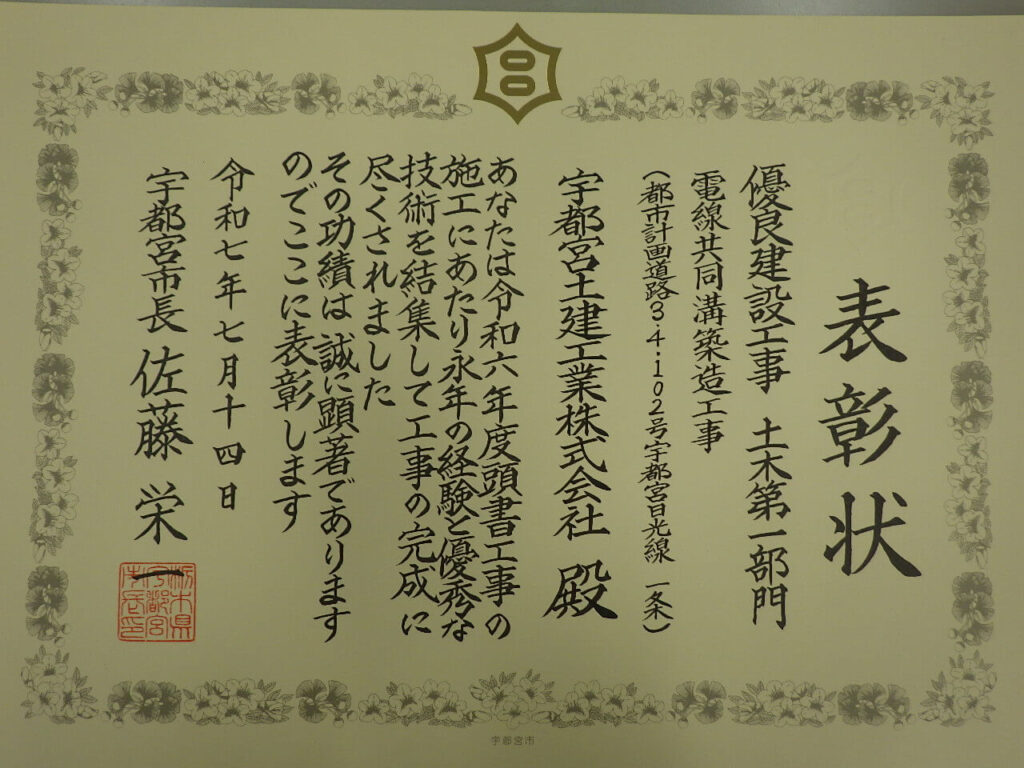 表彰状
優良建設工事 土木第一部門
電線共同溝築造工事
(都市計画道路3・4・102号宇都宮日光線 一条)
宇都宮土建工業株式会社 殿
あなたは令和六年度頭書工事の
施工にあたり永年の経験と優秀な
技術を結集して工事の完成に
尽くされました
その功績は誠に顕著であります
のでここに表彰します
令和七年七月十四日
宇都宮市長 佐藤栄一
栃木県
宇都宮
市長印
宇都宮市